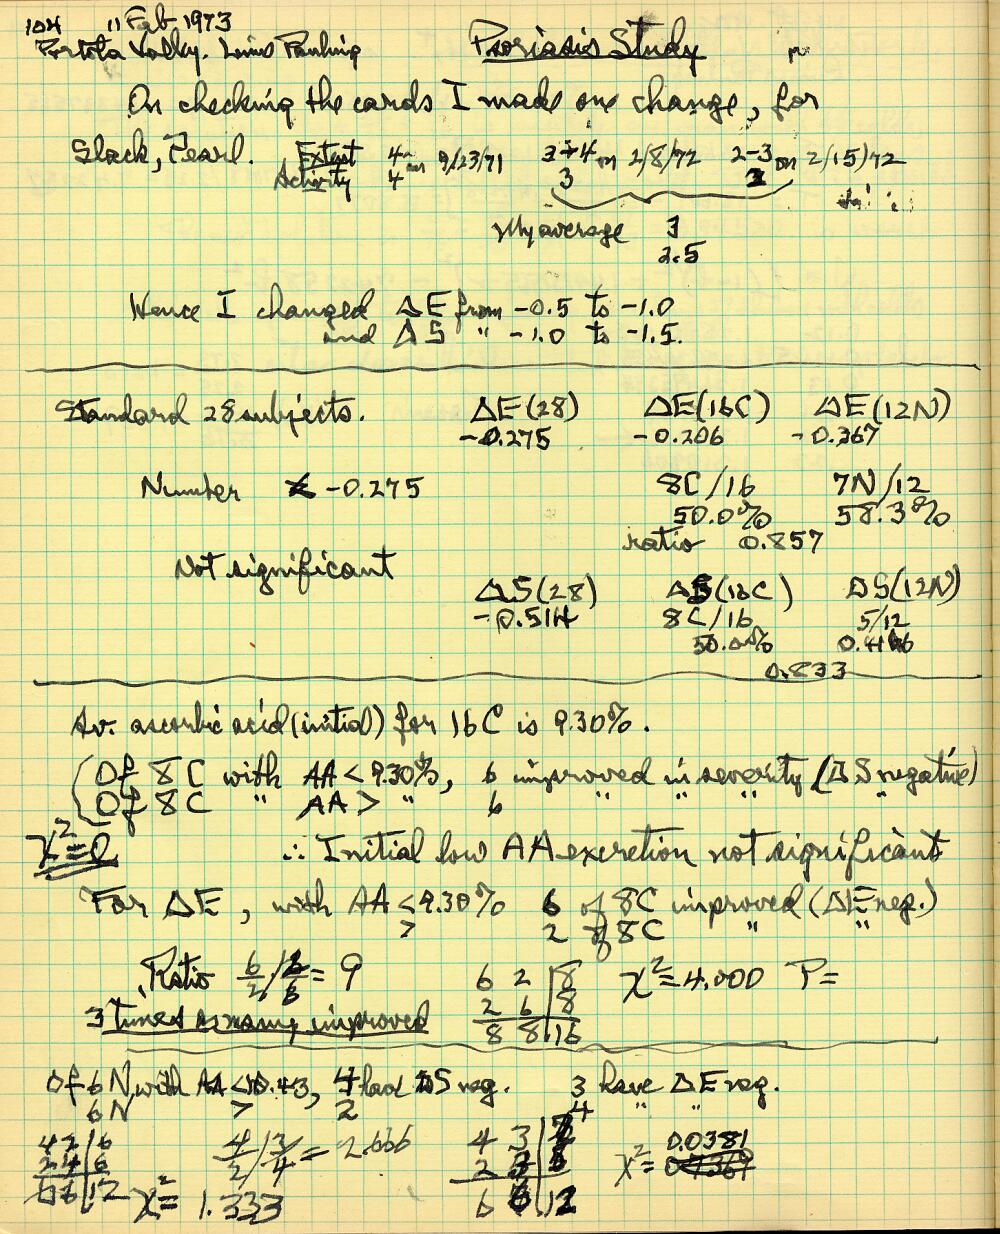 104 11 Feb 1973
Portola Valley. Linus Pauling Psoriasis Study
On checking the cards I made one change, for
Slack, Pearl. Extent 4 on 9/23/71 3+4 on 2/8/72 2-3 on 2/15/72
Activity 4 3 2
My average 3
2.5
Hence I changed ΔE from -0.5 to -1.0
and ΔS " -1.0 to -1.5.
Standard 28 subjects. ΔE(28) ΔE(16C) ΔE(12N)
-0.275 -0.206 -0.367
Number < -0.275 8C/16 7N/12
50.0% 58.3%
ratio 0.857
Not significant
ΔS(28) ΔS(16C) ΔS(12N)
-0.514 8C/16 5/12
50.0% 0.416
0.833
Av. ascorbic acid (initial) for 16C is 9.30%.
Of 8C with AA < 9.30%, 6 improved in severity (ΔS negative)
Of 8C " AA > " 6 " " " "
χ²=0 ∴ Initial low AA excretion not significant
For ΔE, with AA < 9.30% 6 of 8C improved (ΔE neg.)
> 2 of 8C " "
Ratio 6/2 / 2/6 = 9 6 2 | 8 χ² = 4.000 P=
2 6 | 8
3 times as many improved 8 8 | 16
Of 6 N with AA < 10.43, 4 had ΔS neg. 3 have ΔE neg.
6N > 2 4 " "
4 2 | 6 4/2 / 3/4 = 2.666 4 3 0.0381
2 4 | 6 2 χ² =
6 6 | 12 χ² = 1.333 6 6 | 12